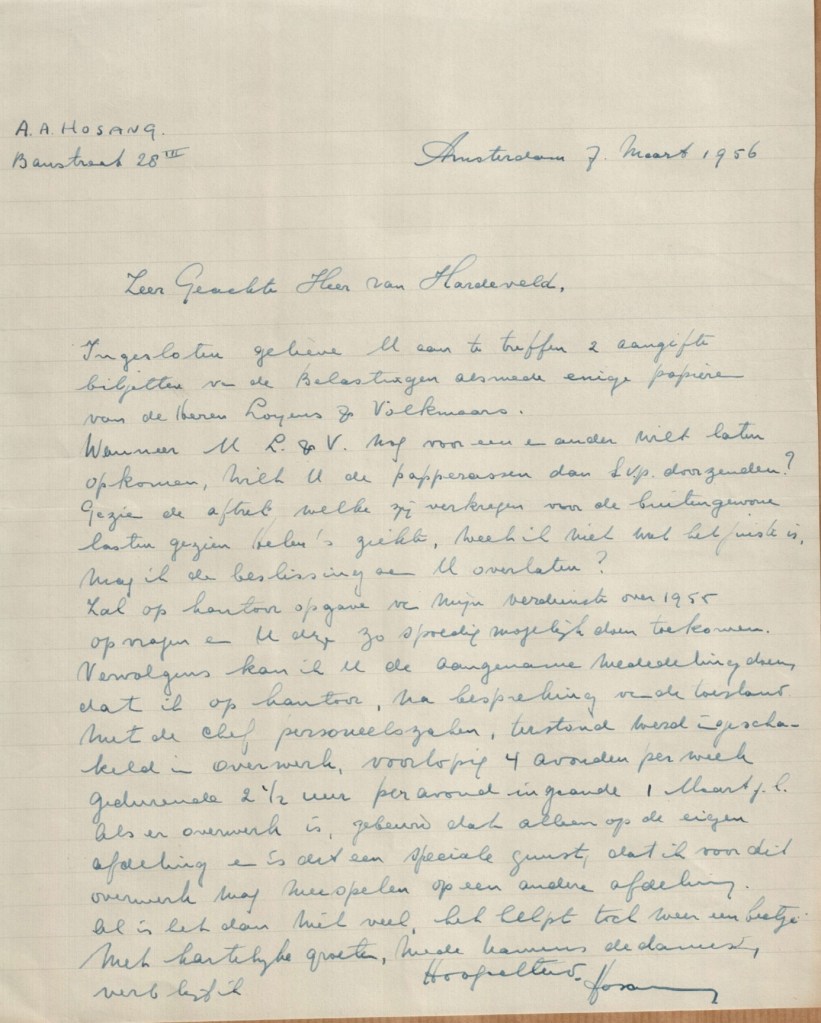 A. A. HOSANG.
Banstraat 28 III
Amsterdam 7 Maart 1956
Zeer Geachte Heer van Hardeveld,
Ingesloten gelieve U aan te treffen 2 aangifte
biljetten v. de Belastingen alsmede enige papieren
van de Heren Loyens & Volkmaars.
Wanneer U L. & V. nog voor een en ander wilt laten
opkomen, wilt U de papperassen dan s.v.p. doorzenden?
Gezien de aftrek welke zij verkregen voor de buitengewone
lasten gezien Helen's ziekte, weet ik niet wat het juiste is,
mag ik de beslissing aan U overlaten?
Zal op kantoor opgave v. mijn verdienste over 1955
opvragen en U deze zo spoedig mogelijk doen toekomen.
Vervolgens kan ik U de aangename mededeling doen,
dat ik op kantoor, na bespreking v. de toestand
met de chef personeelszaken, terstond werd ingescha-
keld in overwerk, voorlopig 4 avonden per week
gedurende 2 1/2 uur per avond ingaande 1 Maart j.l.
Als er overwerk is, gebeurd dat alleen op de eigen
afdeling en is dit een speciale gunst, dat ik voor dit
overwerk mag meespelen op een andere afdeling.
Al is het dan niet veel, het helpt toch weer een beetje.
Met hartelijke groeten, mede namens de dames,
verblijf ik
Hoogachtend.
Hosang